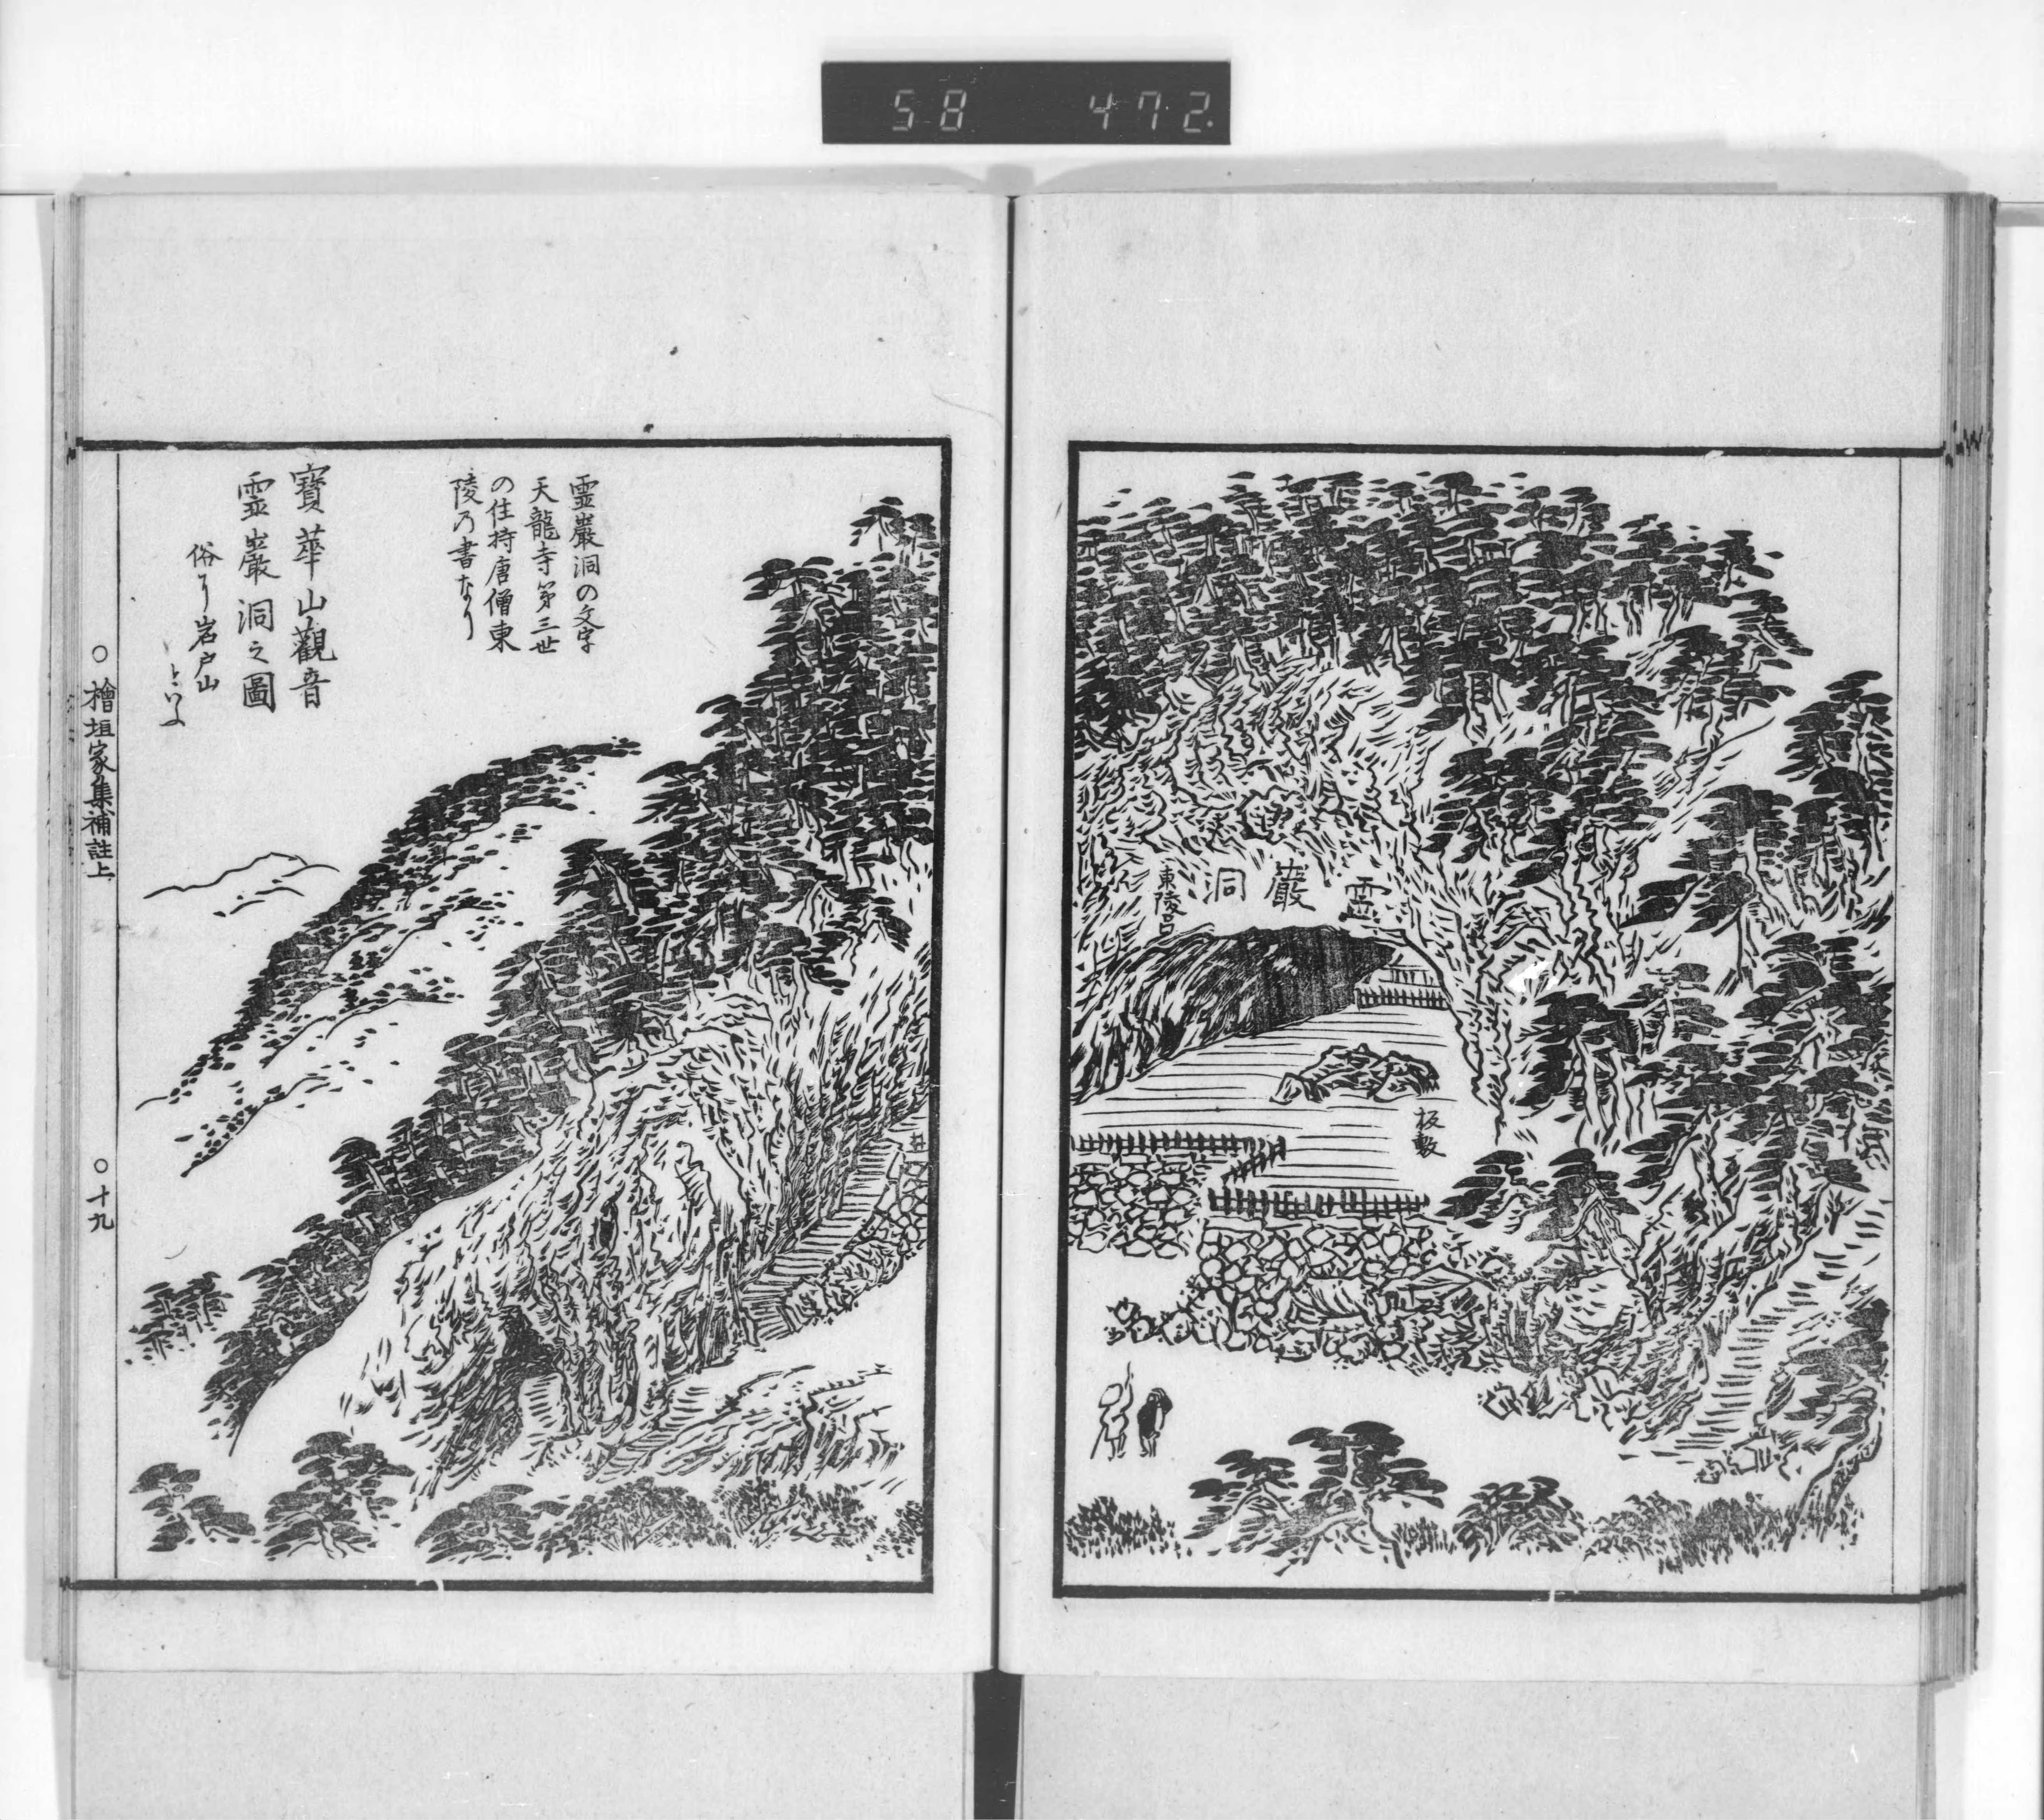 58 472.
霊
巖
洞
東陵
板敷
霊巖洞の文字
天龍寺第三世
の住持唐僧東
陵乃書なり
寶華山觀音
霊巖洞之圖
俗に岩戸山
といふ
○檜垣家集補註上
○十九